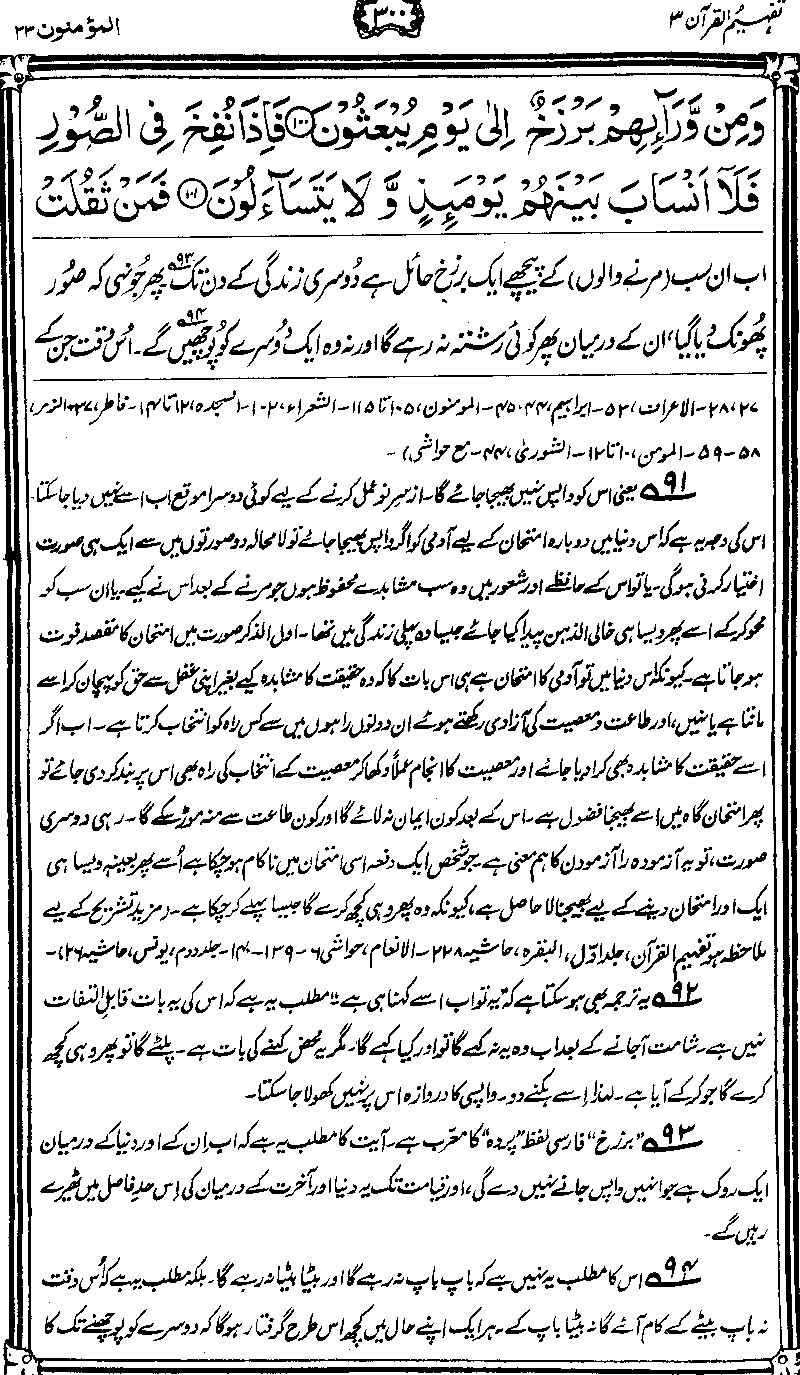 تفہیم القرآن ۳
۳۰۰
المؤمنون ۲۳
وَمِنْ وَّرَآىِٕهِمْ بَرْزَخٌ اِلٰى يَوْمِ يُبْعَثُوْنَ ﴿۱۰۰﴾ فَاِذَا نُفِخَ فِي الصُّوْرِ
فَلَآ اَنْسَابَ بَيْنَهُمْ يَوْمَىِٕذٍ وَّلَا يَتَسَآءَلُوْنَ ﴿۱۰۱﴾ فَمَنْ ثَقُلَتْ
اب ان سب (مرنے والوں) کے پیچھے ایک برزخ حائل ہے دُوسری زندگی کے دن تک۹۳ پھر جُونہی کہ صُور
پھونک دیا گیا، ان کے درمیان پھر کوئی رشتہ نہ رہے گا اور نہ وہ ایک دُوسرے کو پوچھیں گے۹۴۔ اُس وقت جن کے
۲۷، ۲۸۔ الاعراف، ۵۳۔ ابراہیم، ۴۴، ۴۵۔ المومنون، ۱۰۵ تا ۱۱۵۔ الشعراء، ۱۰۲۔ السجدہ، ۱۲ تا ۱۴۔ فاطر، ۳۷۔ الزمر،
۵۸۔ ۵۹۔ المومن، ۱۰ تا ۱۲۔ الشوریٰ، ۴۴۔ مع حواشی)۔
۹۱ یعنی اس کو واپس نہیں بھیجا جائے گا۔ از سرِ نو عمل کرنے کے لیے کوئی دوسرا موقع اب اسے نہیں دیا جا سکتا۔
اس کی وجہ یہ ہے کہ اس دنیا میں دوبارہ امتحان کے لیے آدمی کو اگر واپس بھیجا جائے تو لا محالہ دو صورتوں میں سے ایک ہی صورت
اختیار کرنی ہوگی۔ یا تو اس کے حافظے اور شعور میں وہ سب مشاہدے محفوظ ہوں جو مرنے کے بعد اس نے کیے۔ یا ان سب کو
محو کر کے اسے پھر ویسا ہی خالی الذہن پیدا کیا جائے جیسا وہ پہلی زندگی میں تھا۔ اول الذکر صورت میں امتحان کا مقصد فوت
ہو جاتا ہے۔ کیونکہ اس دنیا میں تو آدمی کا امتحان ہے ہی اس بات کا کہ وہ حقیقت کا مشاہدہ کیے بغیر اپنی عقل سے حق کو پہچان کر اسے
مانتا ہے یا نہیں، اور طاعت و معصیت کی آزادی رکھتے ہوئے ان دونوں راہوں میں سے کس راہ کو انتخاب کرتا ہے۔ اب اگر
اسے حقیقت کا مشاہدہ بھی کرا دیا جائے اور معصیت کا انجام عملاً دکھا کر معصیت کے انتخاب کی راہ بھی اس پر بند کر دی جائے تو
پھر امتحان گاہ میں اسے بھیجنا فضول ہے۔ اس کے بعد کون ایمان نہ لائے گا اور کون طاعت سے منہ موڑ سکے گا۔ رہی دوسری
صورت، تو یہ آزمودہ را آزمودن کا ہم معنی ہے۔ جو شخص ایک دفعہ اسی امتحان میں ناکام ہو چکا ہے اُسے پھر بعینہٖ ویسا ہی
ایک اور امتحان دینے کے لیے بھیجنا لا حاصل ہے، کیونکہ وہ پھر وہی کچھ کرے گا جیسا پہلے کر چکا ہے۔ (مزید تشریح کے لیے
ملاحظہ ہو تفہیم القرآن، جلد اوّل، البقرہ، حاشیہ ۲۲۸۔ الانعام، حواشی ۶۔ ۱۳۹۔ ۱۴۰۔ جلد دوم، یونس، حاشیہ ۲۶)۔
۹۲ یہ ترجمہ بھی ہو سکتا ہے کہ "یہ تو اب اسے کہنا ہی ہے"۔ مطلب یہ ہے کہ اس کی یہ بات قابلِ التفات
نہیں ہے۔ شامت آ جانے کے بعد اب وہ یہ نہ کہے گا تو اور کیا کہے گا۔ مگر یہ محض کہنے کی بات ہے۔ پلٹے گا تو پھر وہی کچھ
کرے گا جو کر کے آیا ہے۔ لہٰذا اِسے بکنے دو۔ واپسی کا دروازہ اس پر نہیں کھولا جا سکتا۔
۹۳ "برزخ" فارسی لفظ "پردہ" کا معرّب ہے۔ آیت کا مطلب یہ ہے کہ اب اِن کے اور دنیا کے درمیان
ایک روک ہے جو انہیں واپس جانے نہیں دے گی، اور قیامت تک یہ دنیا اور آخرت کے درمیان کی اِس حدِ فاصل میں ٹھیرے
رہیں گے۔
۹۴ اس کا مطلب یہ نہیں ہے کہ باپ باپ نہ رہے گا اور بیٹا بیٹا نہ رہے گا۔ بلکہ مطلب یہ ہے کہ اُس وقت
نہ باپ بیٹے کے کام آئے گا نہ بیٹا باپ کے۔ ہر ایک اپنے حال میں کچھ اس طرح گرفتار ہوگا کہ دوسرے کو پوچھنے تک کا